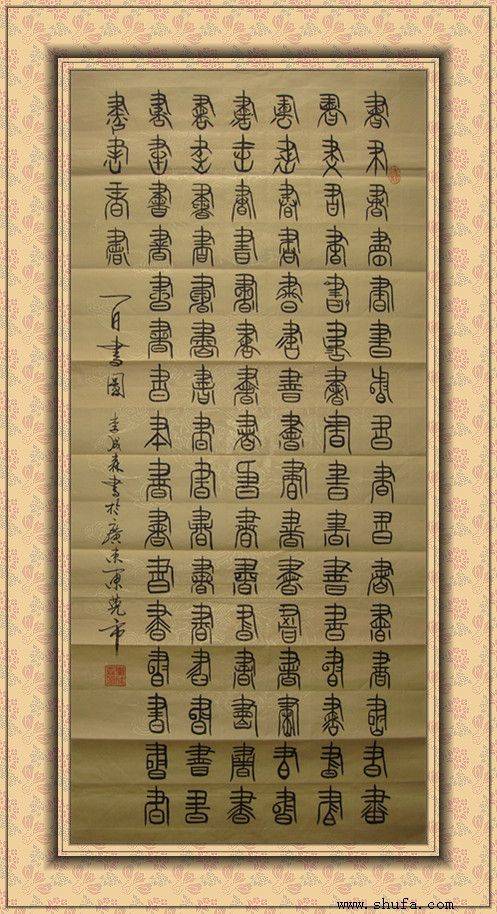 書書書書書書書書書書書書書書書書
書書書書書書書書書書書書書書書書
書書書書書書書書書書書書書書書書
書書書書書書書書書書書書書書書書
書書書書書書書書書書書書書書書書
書書書書書書書書書書書書書書書書
書書書書
百書圖 李成森書於廣東東莞市
www.shufa.com